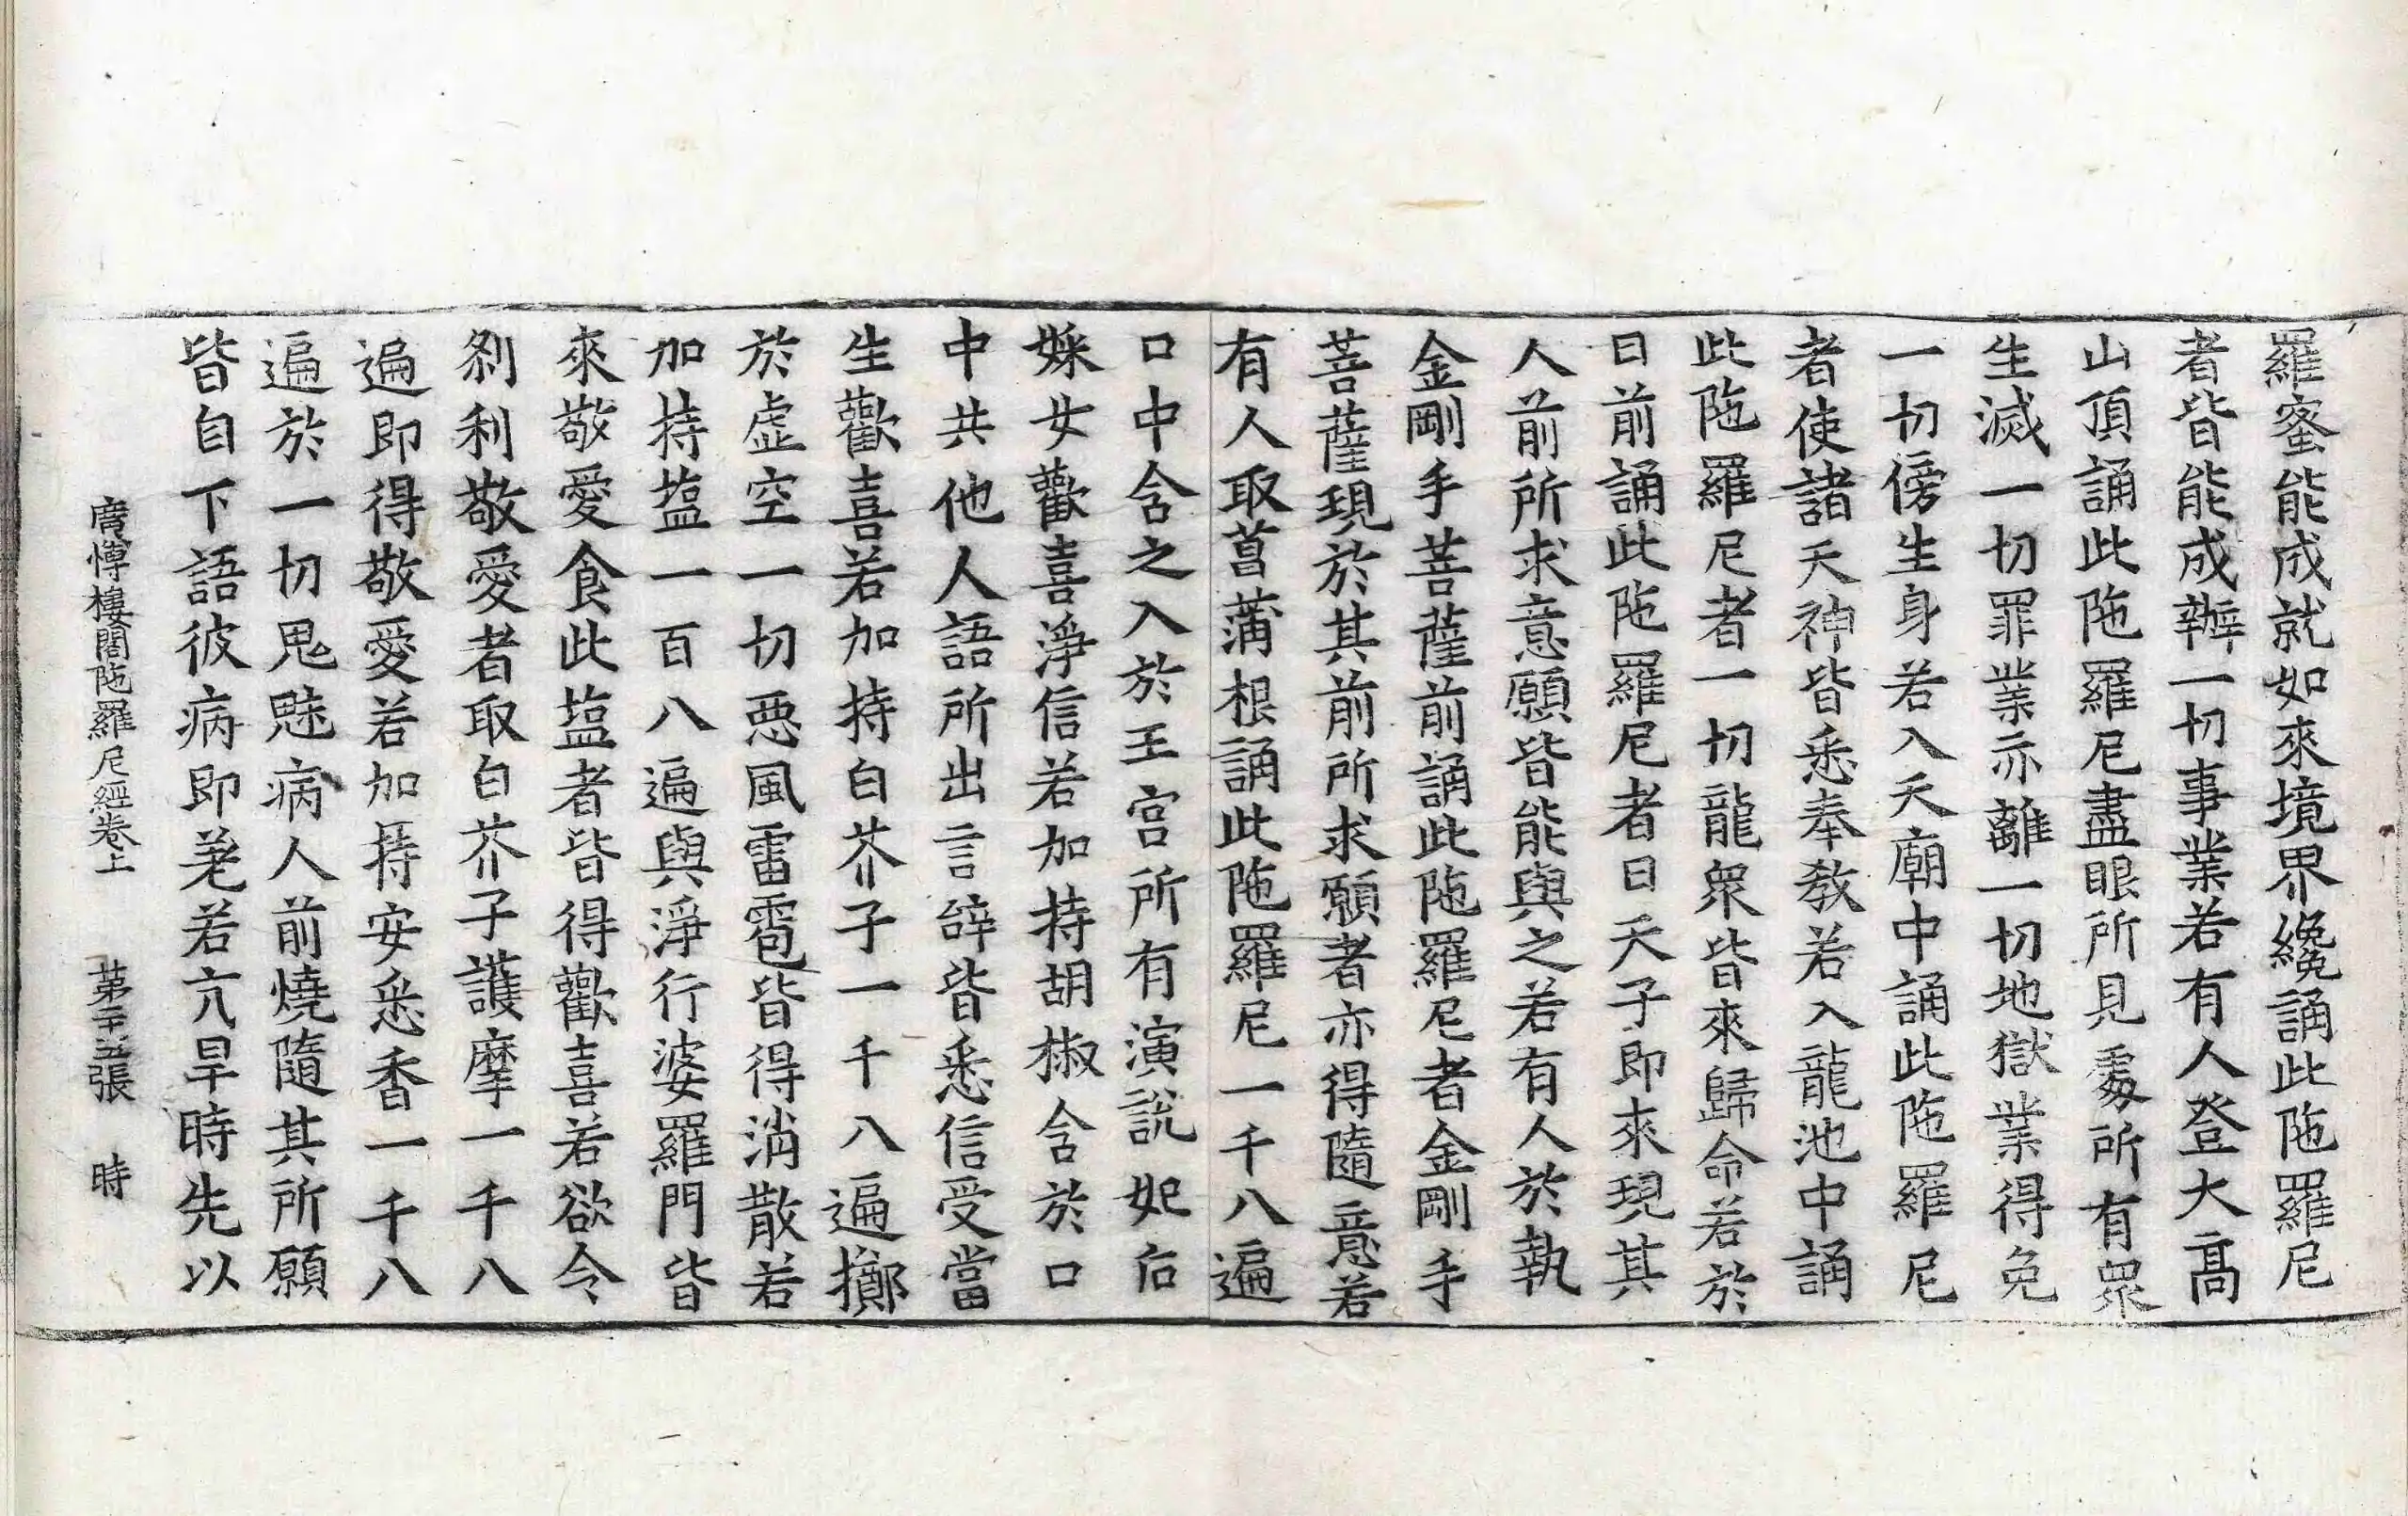 羅蜜能成就如來境界纔誦此陁羅尼
者皆能成辦一切事業若有人登大髙
山頂誦此陁羅尼盡眼所見䖏所有眾
生滅一切罪業亦離一切地獄業得免
一切傍生身若入天廟中誦此陁羅尼
者使諸天神皆悉奉敎若入龍池中誦
此陁羅尼者一切龍眾皆來歸命若於
日前誦此陁羅尼者日天子即來現其
人前所求意願皆能與之若有人於執
金剛手菩薩前誦此陁羅尼者金剛手
菩薩現於其前所求願者亦得隨意若
有人取菖蒲根誦此陁羅尼一千八遍
口中含之入於王宮所有演說妃后
婇女歡喜淨信若加持胡椒含於口
中共他人語所出言辝皆悉信受當
生歡喜若加持白芥子一千八遍擲
於虛空一切惡風雷雹皆得消散若
加持塩一百八遍與淨行婆羅門皆
來敬愛食此塩者皆得歡喜若欲令
剎利敬愛者取白芥子護摩一千八
遍即得敬愛若加持安悉香一千八
遍於一切鬼魅病人前燒隨其所願
皆自下語彼病即差若亢旱時先以
廣博樓閣陁羅尼經卷上 第二十五張 時